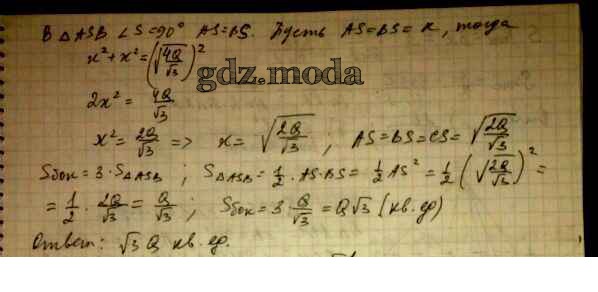 В △ASB ∠S=90° AS=BS. Пусть AS=BS=x, тогда
x²+x²=(√(4Q/√3))²
gdz.moda
2x²= 4Q/√3
x²= 2Q/√3 => x= √(2Q/√3) ; AS=BS=CS= √(2Q/√3)
Sбок=3·S△ASB ; S△ASB= 1/2 · AS·BS= 1/2 AS² = 1/2 (√(2Q/√3))² =
= 1/2 · 2Q/√3 = Q/√3 ; Sбок= 3·Q/√3 =Q√3 (кв.ед)
Ответ: √3 Q кв.ед.